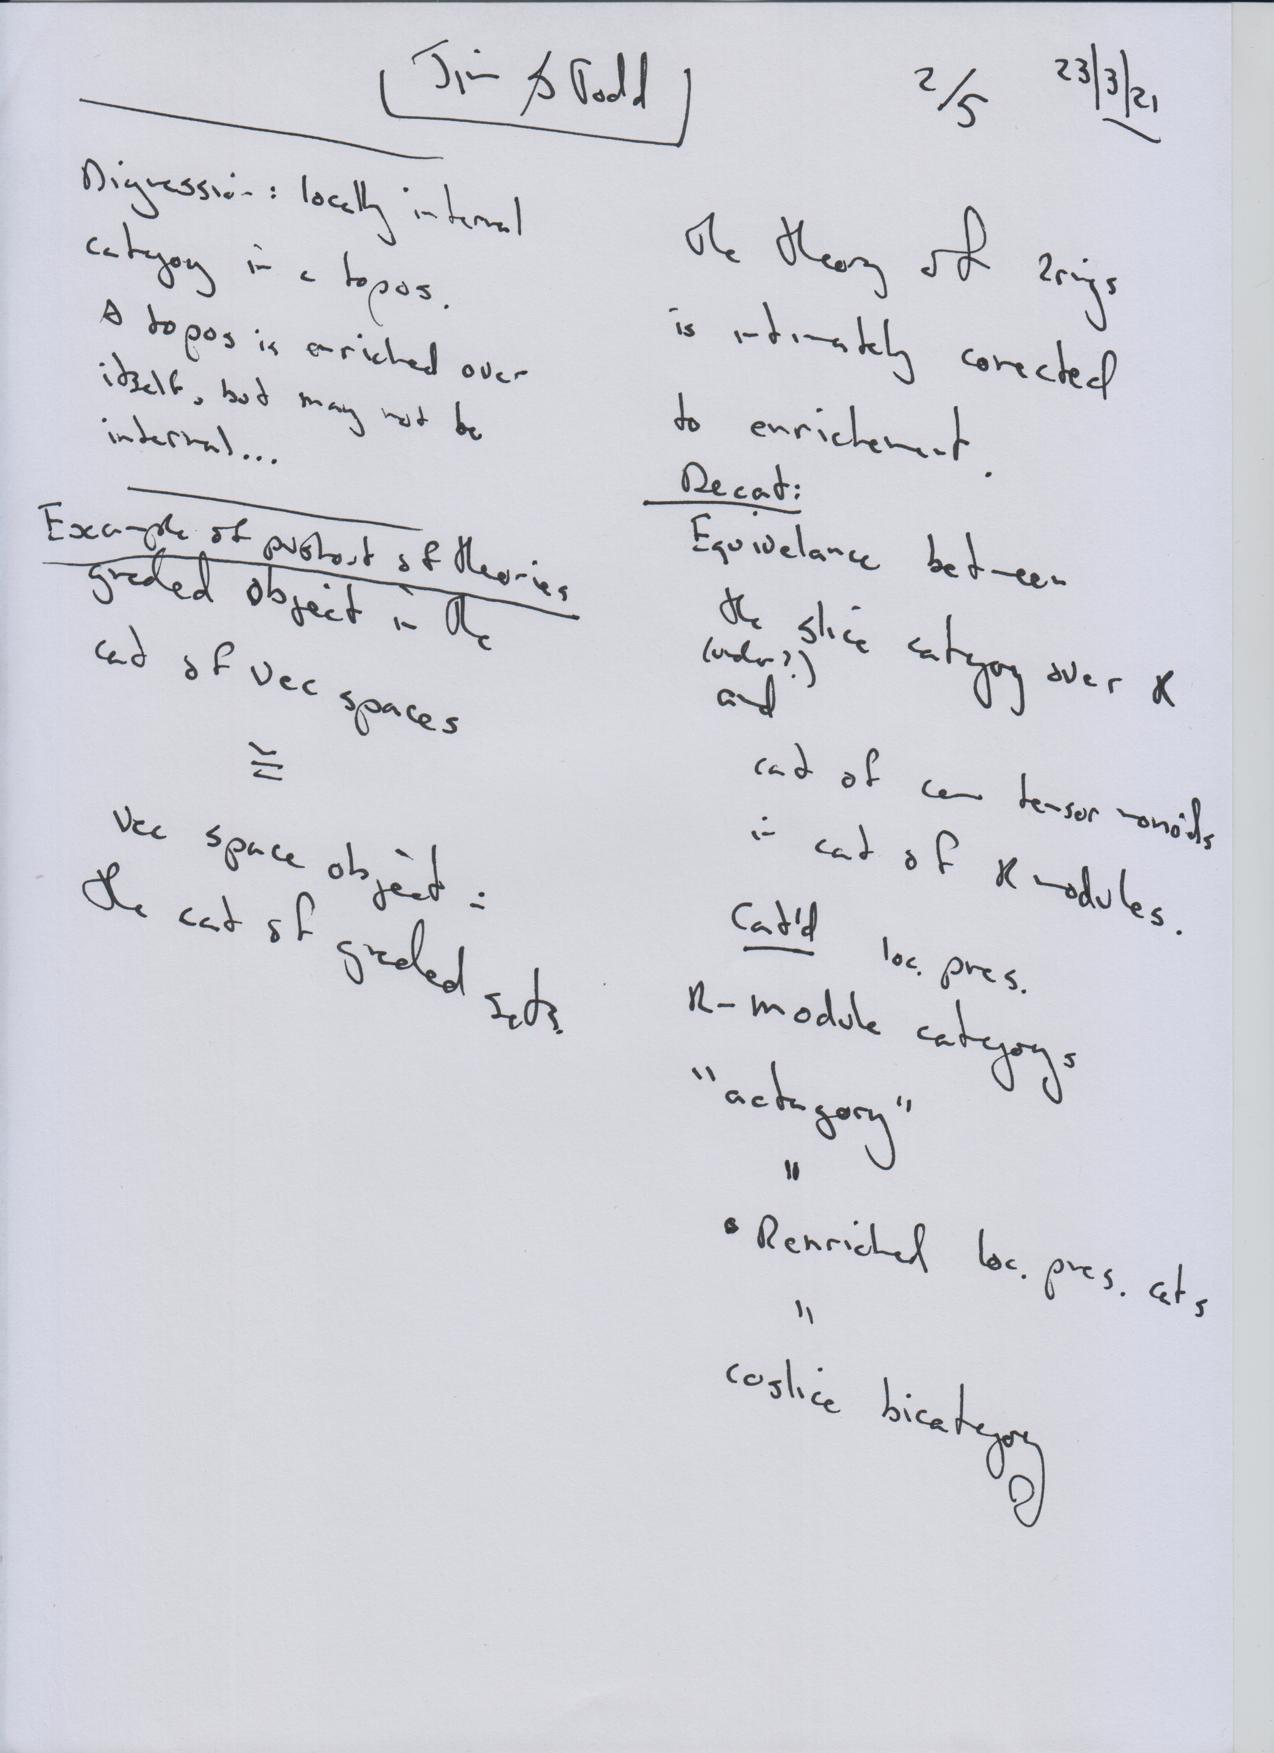 Jim & Todd
2/5
23/3/21
Digression: locally internal
category in a topos.
A topos is enriched over
itself, but may not be
internal...
Example of pushout of theories
graded object in the
cat of vec spaces
≅
vec space object in
the cat of graded sets.
The theory of 2rings
is intimately conected
to enrichement.
Decat:
Equivelance between
the slice category over R
(under?)
and
cat of com tensor monoids
in cat of R modules.
Cat'd loc. pres.
R-module categorys
"actegory"
"
• R enriched loc. pres. cats
"
coslice bicategory